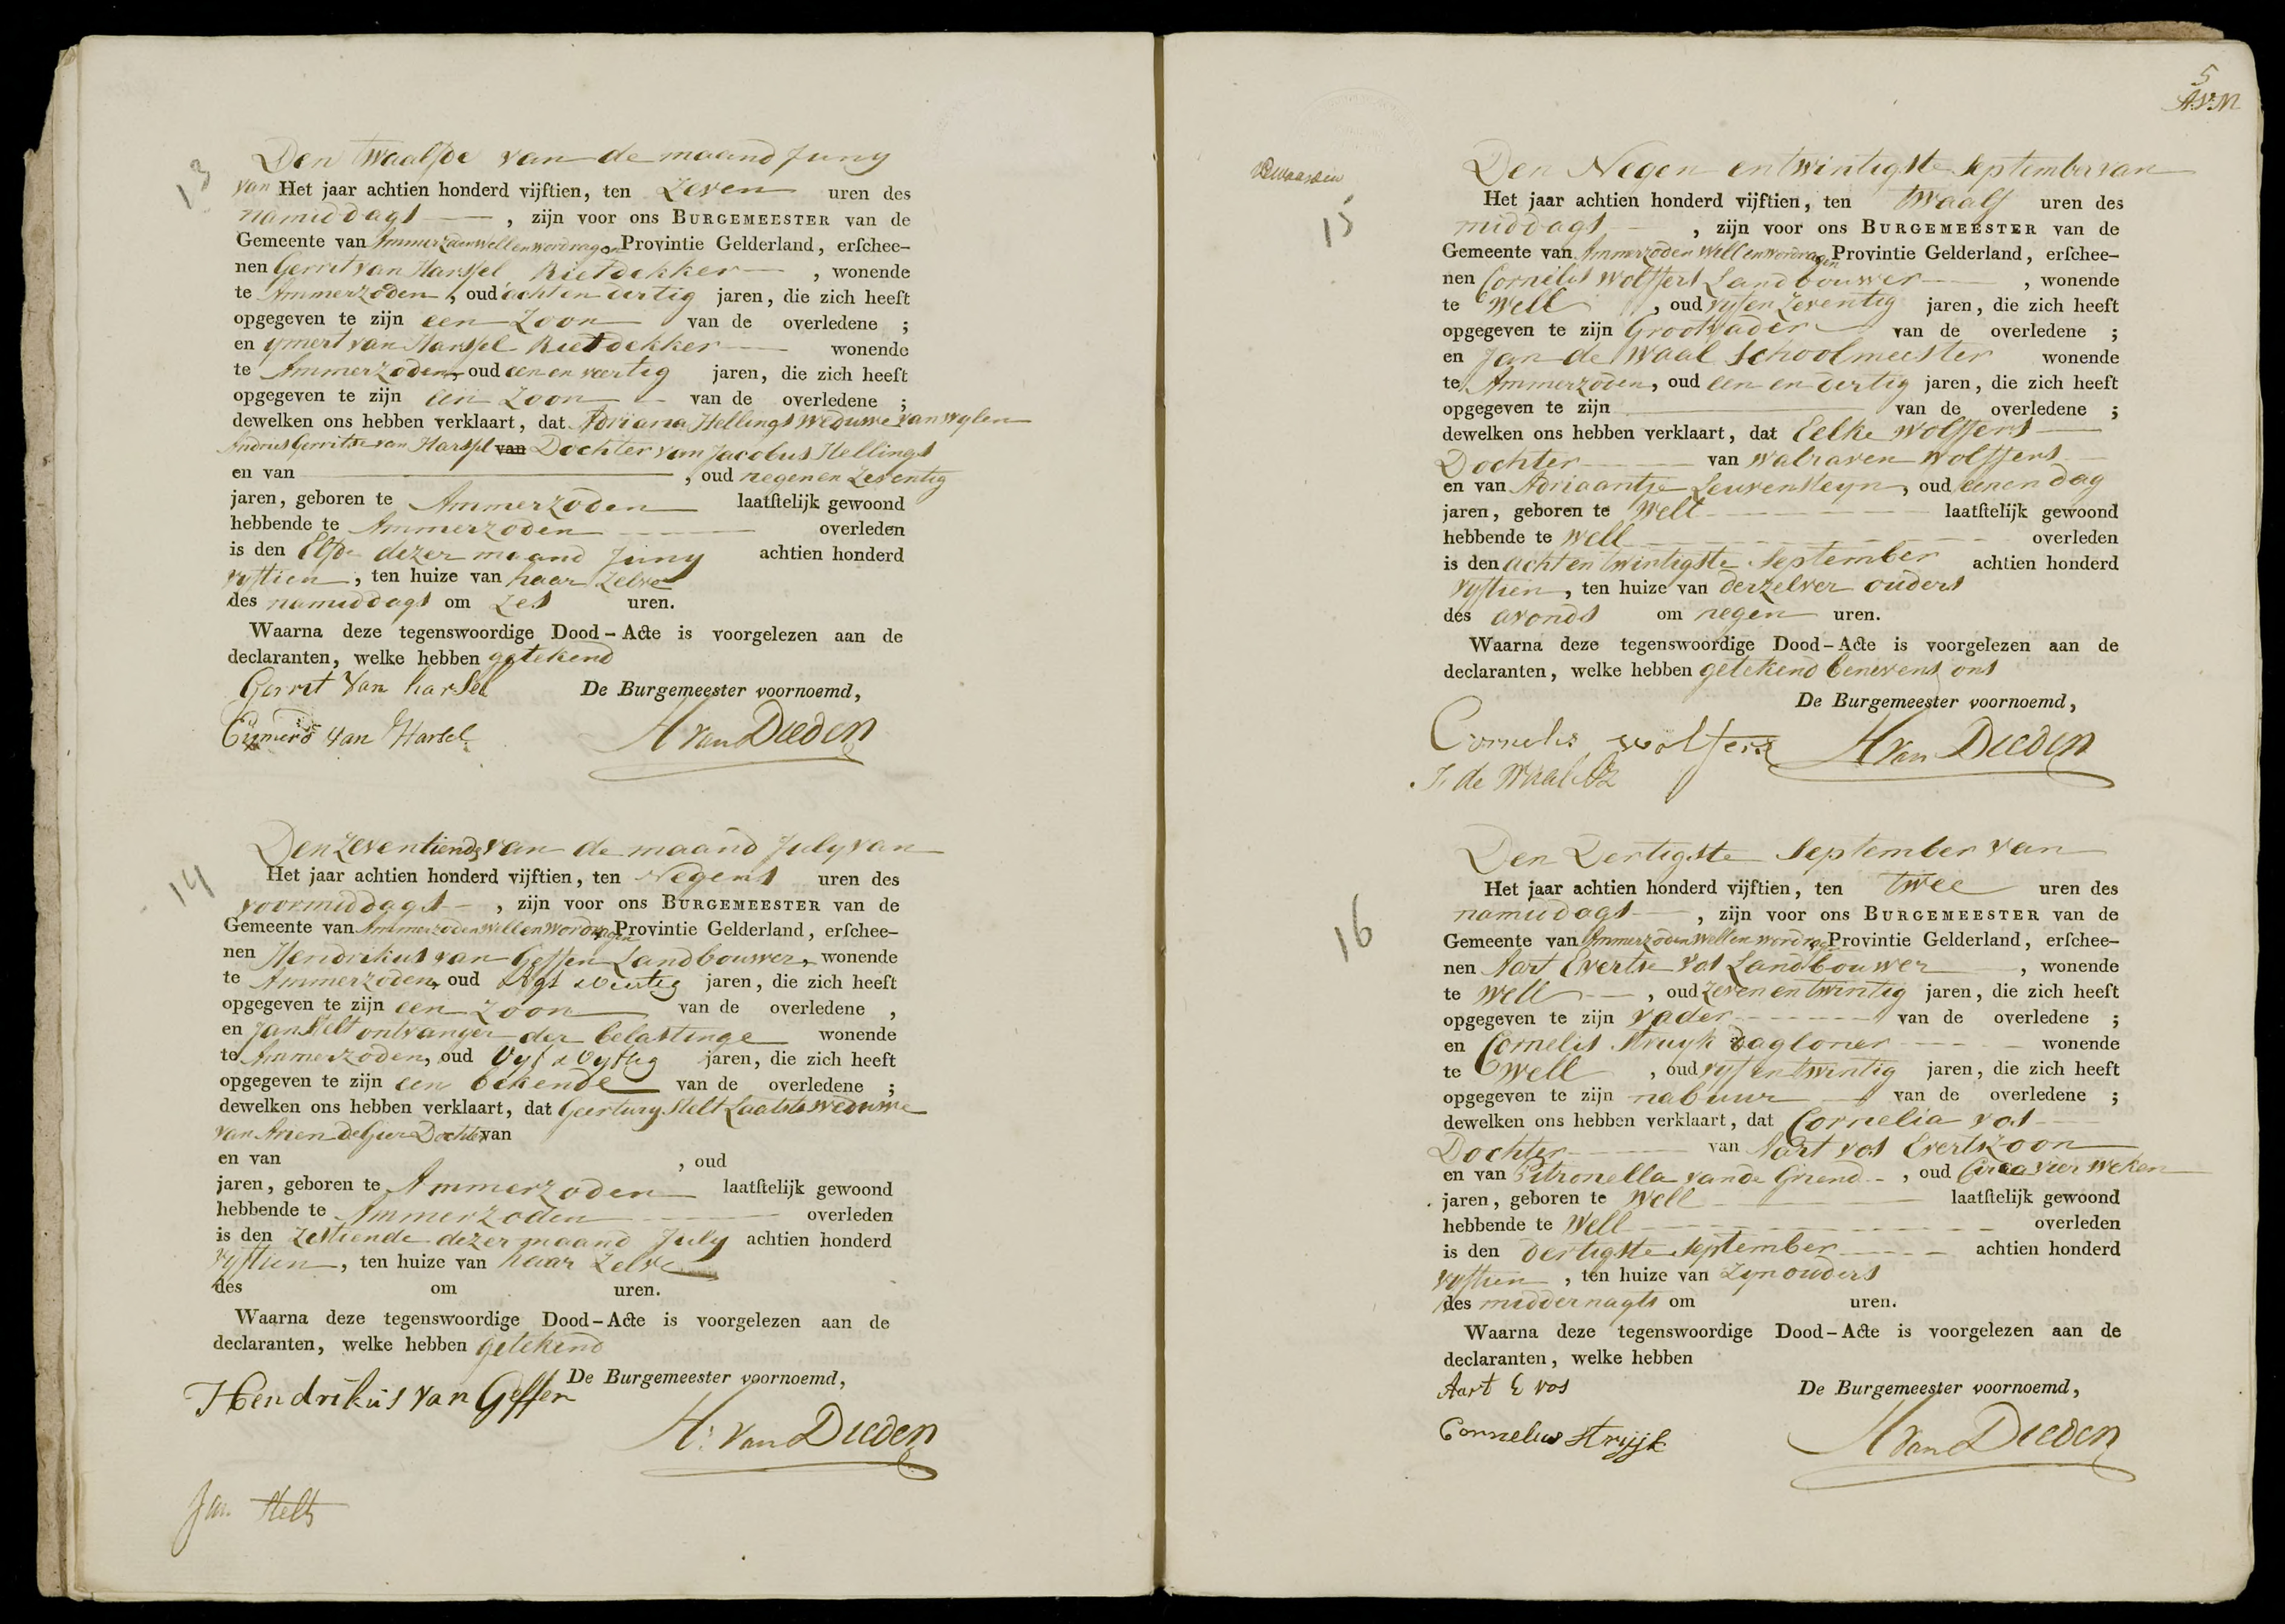 13
Den twaalfde van de maand Juny
van Het jaar achtien honderd vijftien, ten Zeven uren des
namiddags, zijn voor ons BURGEMEESTER van de
Gemeente van Ammerzoden Well en Wordragen Provintie Gelderland, erſchee-
nen Gerrit van Harssel Rietdekker, wonende
te Ammerzoden, oud acht en dertig jaren, die zich heeft
opgegeven te zijn een Zoon van de overledene ;
en Ymert van Harssel Rietdekker wonende
te Ammerzoden, oud een en veertig jaren, die zich heeft
opgegeven te zijn een Zoon van de overledene ;
dewelken ons hebben verklaart, dat Adriana Hellings Weduwe van wylen
Andries Gerritse van Harssel van Dochter van Jacobus Hellings
en van , oud negen en Zeventig
jaren, geboren te Ammerzoden laatſtelijk gewoond
hebbende te Ammerzoden overleden
is den Elfde dezer maand Juny achtien honderd
vyftien, ten huize van haar Zelve
des namiddags om Zes uren.
Waarna deze tegenswoordige Dood-Acte is voorgelezen aan de
declaranten, welke hebben getekend
Gerrit Van harsel De Burgemeester voornoemd,
van Harsel H van Dieden
14
Den Zeventiende van de maand July van
Het jaar achtien honderd vijftien, ten Negens uren des
voormiddags, zijn voor ons BURGEMEESTER van de
Gemeente van Ammerzoden Well en Wordragen Provintie Gelderland, erſchee-
nen Hendrikus van Geffen Landbouwer, wonende
te Ammerzoden, oud Agt & jaren, die zich heeft
opgegeven te zijn een Zoon van de overledene ,
en Jan Stelt ontvanger der belastinge wonende
te Ammerzoden, oud Vyf & Vyftig jaren, die zich heeft
opgegeven te zijn een bekende van de overledene ;
dewelken ons hebben verklaart, dat Geertuy Stelt Laatste weduwe
van Arien de Gier Dochter van
en van , oud
jaren, geboren te Ammerzoden laatſtelijk gewoond
hebbende te Ammerzoden overleden
is den Zestiende dezer maand July achtien honderd
vyftien, ten huize van haar Zelve
des om uren.
Waarna deze tegenswoordige Dood-Acte is voorgelezen aan de
declaranten, welke hebben getekend
De Burgemeester voornoemd,
Hendrikus van Geffen
H: van Dieden
Jan Stelt
5
15
Den Negen en twintigste September van
Het jaar achtien honderd vijftien, ten twaalf uren des
middags, zijn voor ons BURGEMEESTER van de
Gemeente van Ammerzoden Well en Wordragen Provintie Gelderland, erſchee-
nen Cornelis Wolffers Landbouwer, wonende
te Well, oud vyf en Zeventig jaren, die zich heeft
opgegeven te zijn Grootvader van de overledene ;
en Jan de Waal Schoolmeester wonende
te Ammerzoden, oud een en dertig jaren, die zich heeft
opgegeven te zijn van de overledene ;
dewelken ons hebben verklaart, dat Eelke Wolffers
Dochter van Walraven Wolffers
en van Adriaantje Leuvensteyn, oud eenen dag
jaren, geboren te Well laatſtelijk gewoond
hebbende te Well overleden
is den acht en twintigste September achtien honderd
vyftien, ten huize van derzelver ouders
des avonds om negen uren.
Waarna deze tegenswoordige Dood-Acte is voorgelezen aan de
declaranten, welke hebben getekend benevens ons
De Burgemeester voornoemd,
Cornelis wolfers H van Dieden
J. de Waal
16
Den Dertigste September van
Het jaar achtien honderd vijftien, ten twee uren des
namiddags, zijn voor ons BURGEMEESTER van de
Gemeente van Ammerzoden Well en Wordragen Provintie Gelderland, erſchee-
nen Aart Evertse Vos Landbouwer, wonende
te Well, oud Zeven en twintig jaren, die zich heeft
opgegeven te zijn vader van de overledene ;
en Cornelis Struyk Dagloner wonende
te Well, oud vyf en twintig jaren, die zich heeft
opgegeven te zijn nabuur van de overledene ;
dewelken ons hebben verklaart, dat Cornelia vos
Dochter van Aart vos Evertszoon
en van Pitronella van de Griend, oud Circa vier weken
jaren, geboren te Well laatſtelijk gewoond
hebbende te Well overleden
is den dertigste September achtien honderd
vyftien, ten huize van Zyn ouders
des middernagts om uren.
Waarna deze tegenswoordige Dood-Acte is voorgelezen aan de
declaranten, welke hebben
Aart E vos De Burgemeester voornoemd,
Cornelus Struyk H van Dieden